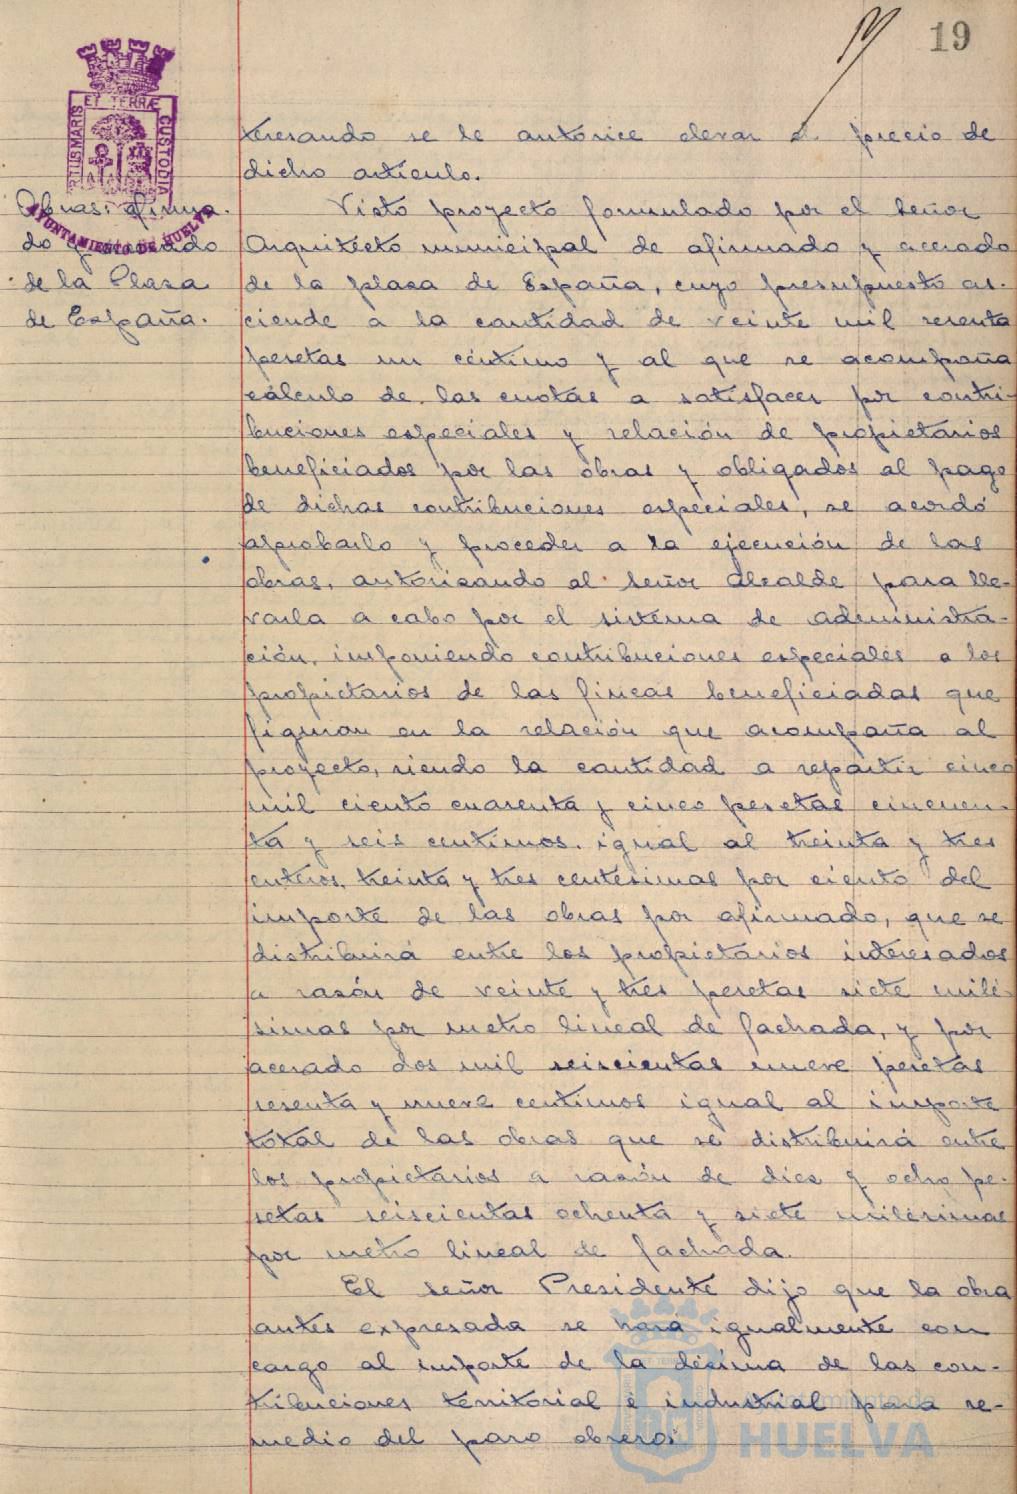 19
ET TERRÆ
PORTUS MARIS
CUSTODIA
AYUNTAMIENTO DE HUELVA
teresando se le autorice elevar el precio de
dicho artículo.
Obras: afirma-
do y acerado
de la Plaza
de España.
Visto proyecto formulado por el señor
Arquitecto municipal de afirmado y acerado
de la plaza de España, cuyo presupuesto as-
ciende a la cantidad de veinte mil sesenta
pesetas un céntimo y al que se acompaña
cálculo de las cuotas a satisfacer por contri-
buciones especiales y relación de propietarios
beneficiados por las obras y obligados al pago
de dichas contribuciones especiales, se acordó
aprobarlo y proceder a la ejecución de las
obras, autorizando al señor Alcalde para lle-
varla a cabo por el sistema de administra-
ción, imponiendo contribuciones especiales a los
propietarios de las fincas beneficiadas que
figuran en la relación que acompaña al
proyecto, siendo la cantidad a repartir cinco
mil ciento cuarenta y cinco pesetas cincuen-
ta y seis centimos. igual al treinta y tres
enteros, treinta y tres centésimas por ciento del
importe de las obras por afirmado, que se
distribuirá entre los propietarios interesados
a razón de veinte y tres pesetas siete milé-
simas por metro lineal de fachada, y por
acerado dos mil seiscientas nueve pesetas
sesenta y nueve centimos igual al importe
total de las obras que se distribuirá entre
los propietarios a razón de diez y ocho pe-
setas seiscientas ochenta y siete milésimas
por metro lineal de fachada.
El señor Presidente dijo que la obra
antes expresada se hará igualmente con
cargo al importe de la décima de las con-
tribuciones territorial é industrial para re-
medio del paro obrero.
Ayuntamiento de
HUELVA